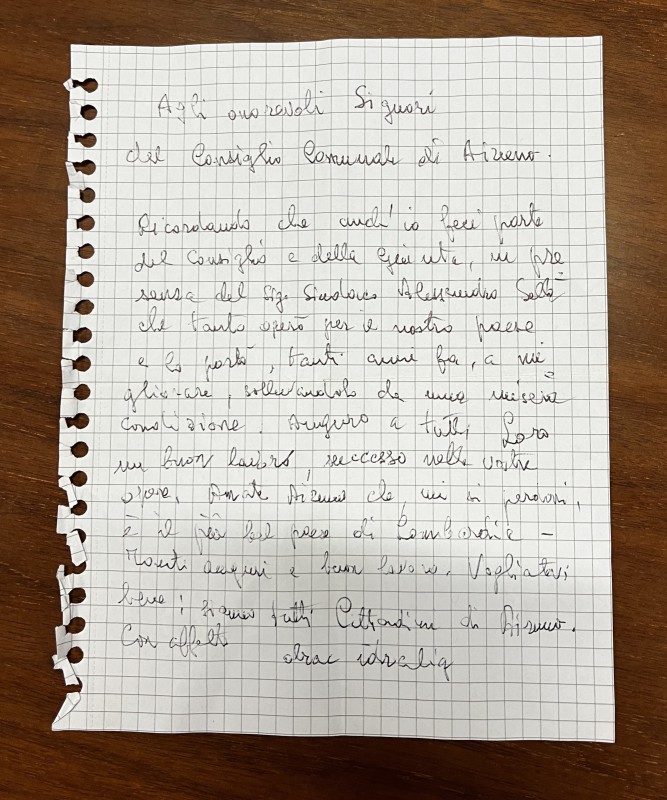 Agli onorevoli Signori
del Consiglio Comunale di Aizeno.
Ricordando che anch'io feci parte
del Consiglio e della Giunta, in pre
senza del Sig. Sindaco Alessandro
che tanto operò per il nostro paese
e lo portò, tanti anni fa, a mi
gliorare, sollevandolo da una misera
condizione. Auguro a tutti Loro
un buon lavoro, successo nelle vostre
opere. Amate che, mi si perdoni,
è il più bel paese di Lombardia -
Tanti auguri e buon lavoro. Vogliatevi
bene; siamo tutti Cittadini di
Con affetto